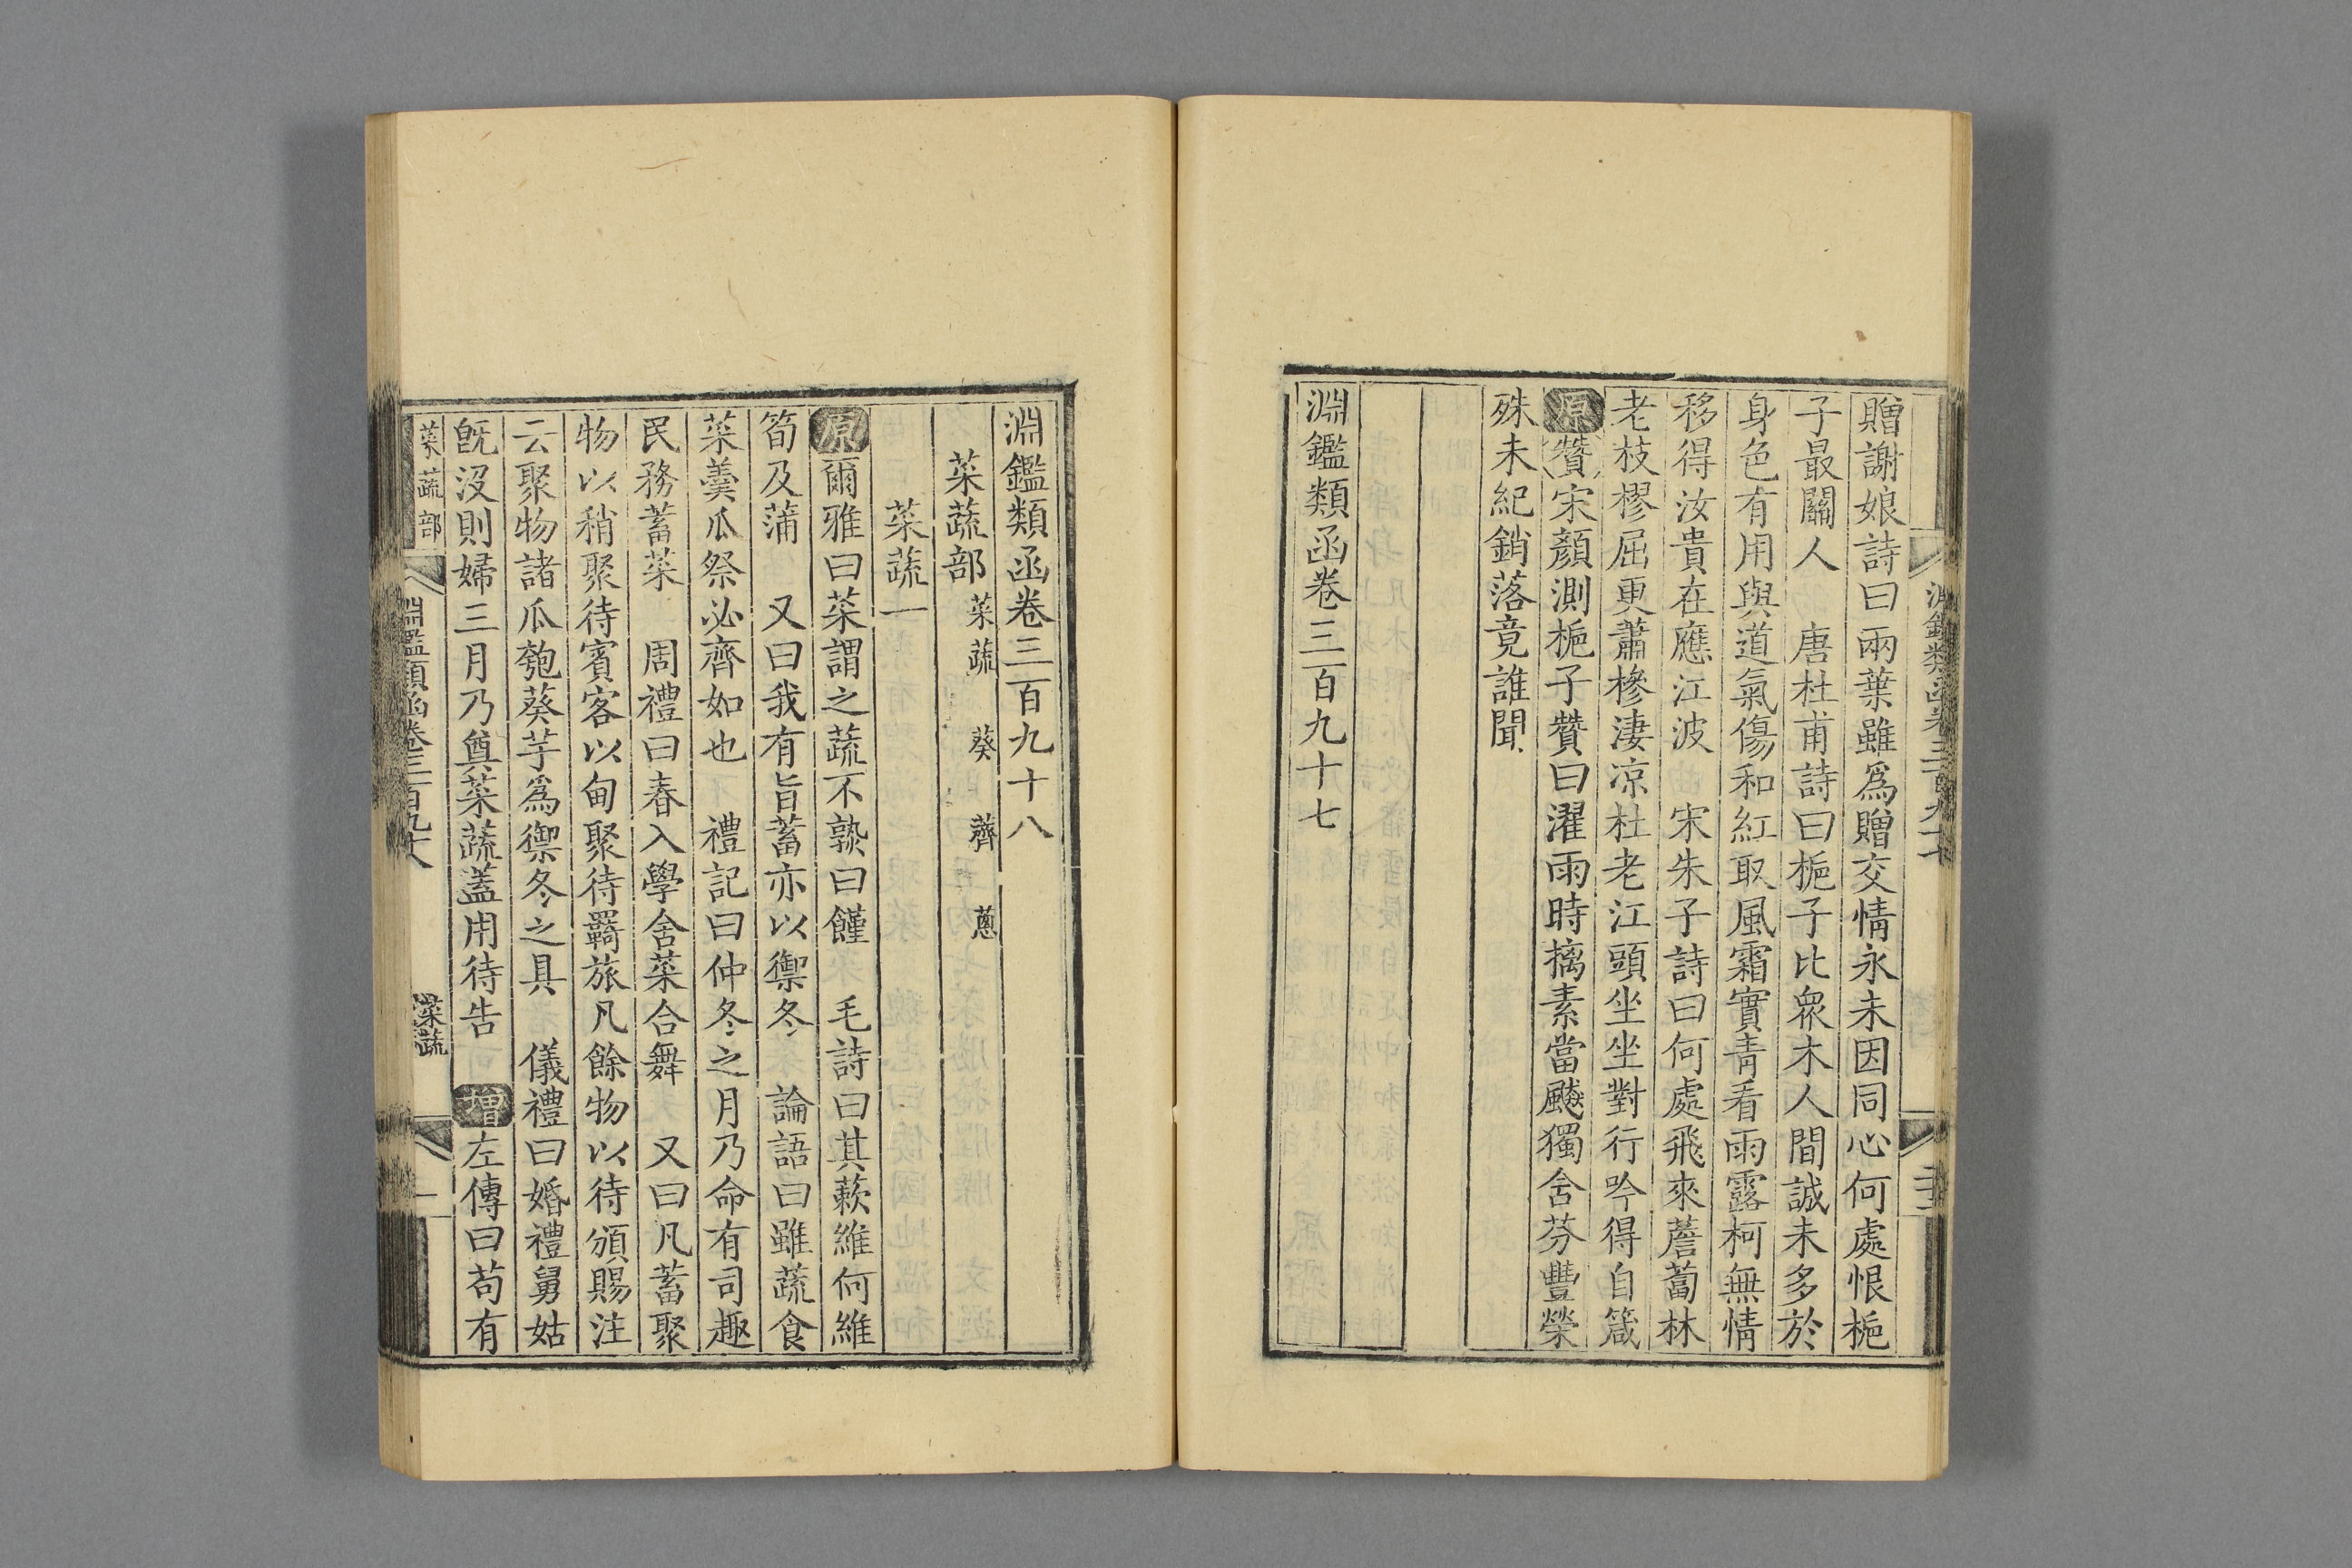 贈謝娘詩曰兩葉雖爲贈交情永未因同心何處恨梔
子最關人 唐杜甫詩曰梔子比衆木人間誠未多於
身色有用與道氣傷和紅取風霜實青看雨露柯無情
移得汝貴在應江波 宋朱子詩曰何處飛來薝蔔林
老枝樛屈更蕭槮淒凉杜老江頭坐坐對行吟得自箴
原贊宋顏測梔子贊曰濯雨時摛素當飈獨舍芬豐榮
殊未紀銷落竟誰聞
淵鑑類函卷三百九十七
淵鑑類函卷三百九十八
菜蔬部 菜蔬 葵 薺 蔥
菜蔬一
原爾雅曰菜謂之蔬不熟曰饉 毛詩曰其蔌維何維
筍及蒲 又曰我有旨蓄亦以禦冬 論語曰雖蔬食
菜羹瓜祭必齊如也 禮記曰仲冬之月乃命有司趣
民務蓄菜 周禮曰春入學舍菜合舞 又曰凡蓄聚
物以稍聚待賓客以甸聚待羈旅凡餘物以待頒賜注
云聚物諸瓜匏葵芋爲禦冬之具 儀禮曰婚禮舅姑
旣沒則婦三月乃奠菜蔬蓋用待告 增左傳曰苟有
菜蔬部 淵鑑類函卷三百九十八 菜蔬 一